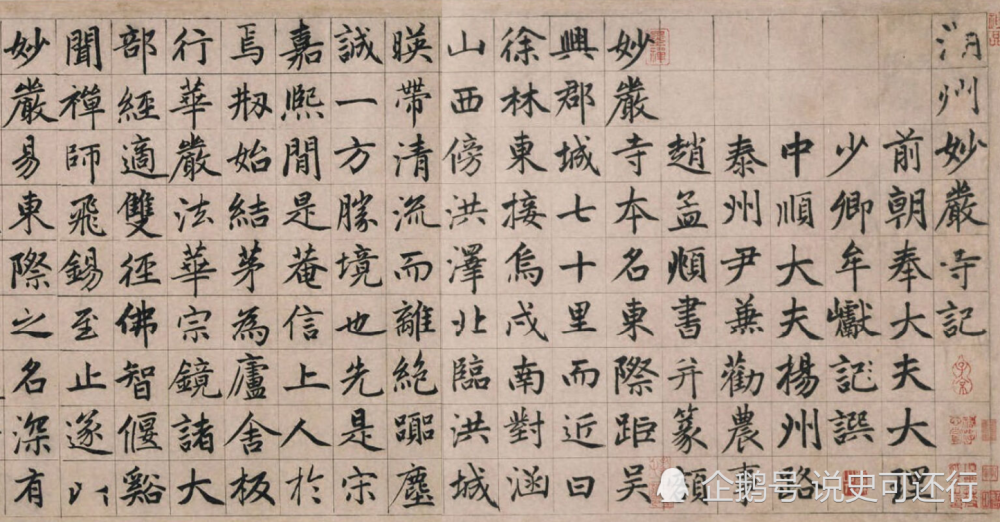 湖州妙嚴寺記
前朝奉大夫大理
少卿牟巘記譔
中順大夫楊州路
泰州尹兼勸農事
趙孟頫書并篆額
妙嚴寺本名東際距吳
興郡城七十里而近曰
徐林東接烏戍南對涵
山西傍洪澤北臨洪城
暎帶清流而離絕塵
誠一方勝境也先是宋
嘉熙間是菴信上人於
焉剏始結茅為廬舍板
行華嚴法華宗鏡諸大
部經適雙徑佛智偃谿
聞禪師飛錫至止遂以
妙嚴易東際之名深有
企鹅号 说史可还行